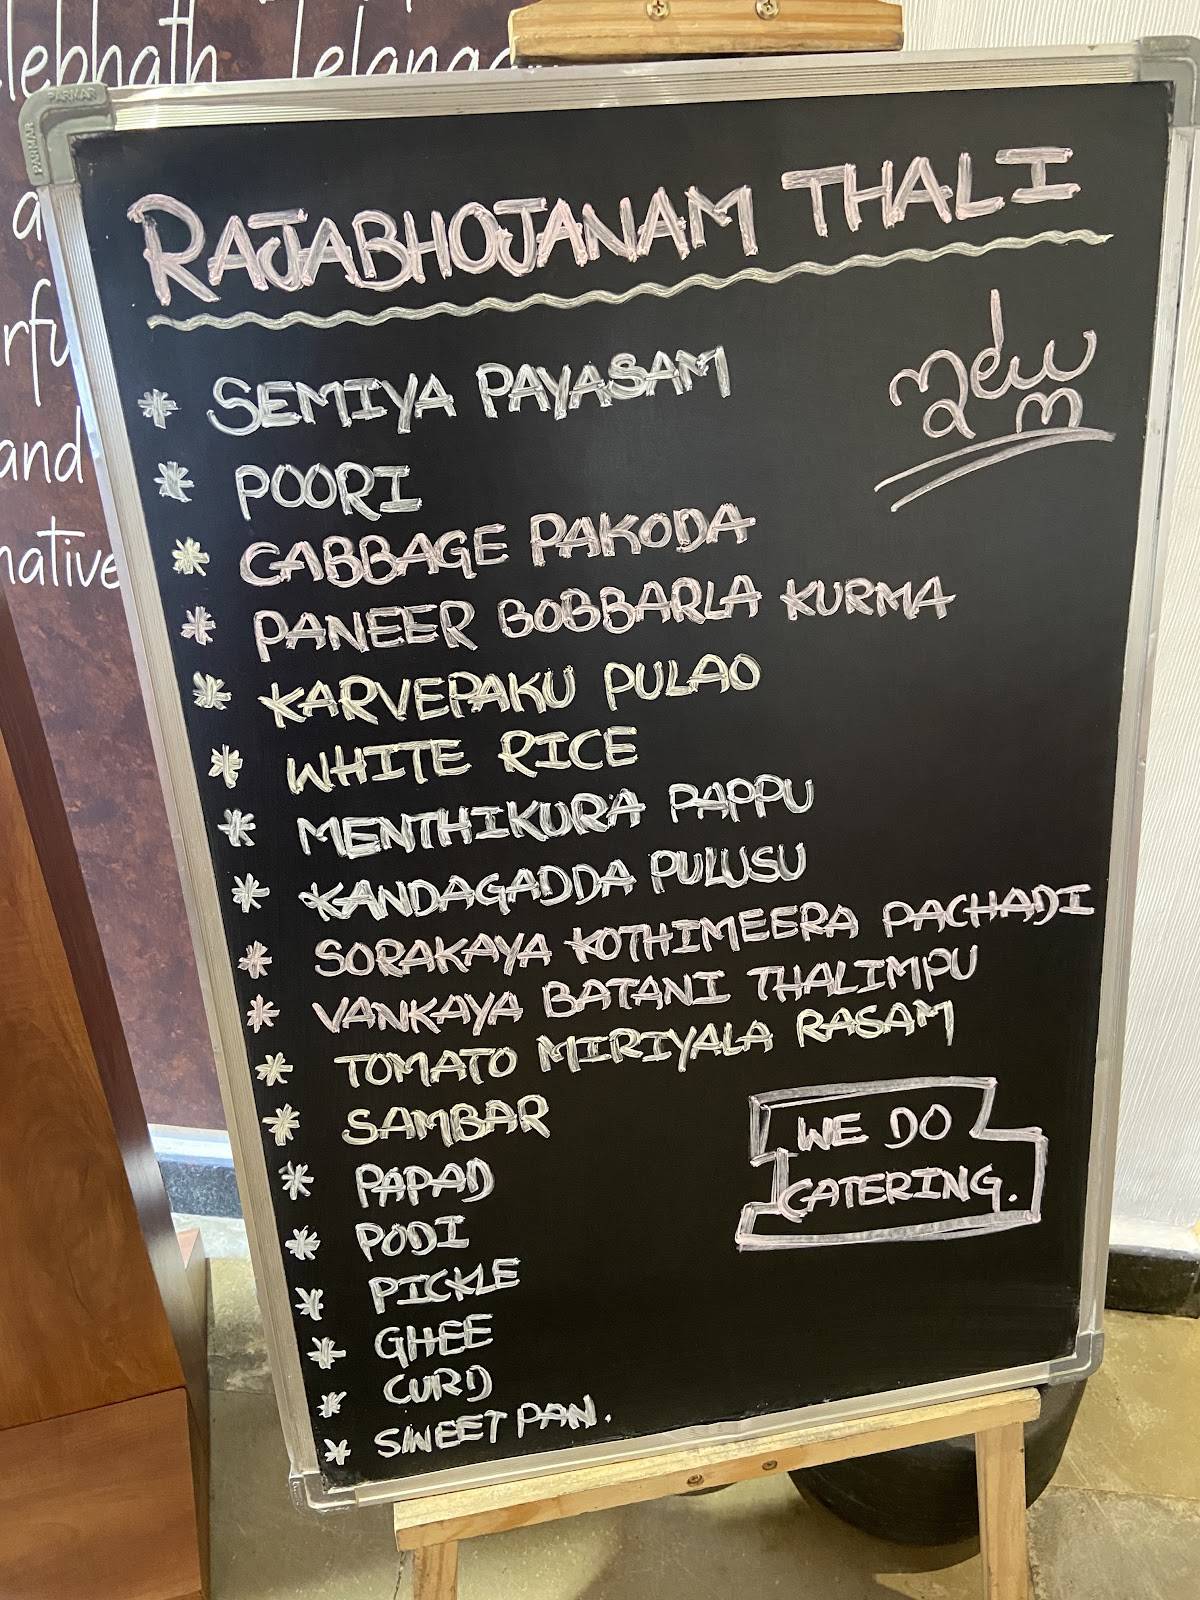 PARMAR
PARMAR
RAJABHOJANAM THALI
* SEMIYA PAYASAM
* POORI
* CABBAGE PAKODA
* PANEER BOBBARLA KURMA
* KARVEPAKU PULAO
* WHITE RICE
* MENTHIKURA PAPPU
* KANDAGADDA PULUSU
* SORAKAYA KOTHIMEERA PACHADI
* VANKAYA BATANI THALIMPU
* TOMATO MIRIYALA RASAM
* SAMBAR
* PAPAD
* PODI
* PICKLE
* GHEE
* CURD
* SWEET PAN.
WE DO
CATERING.
and
native